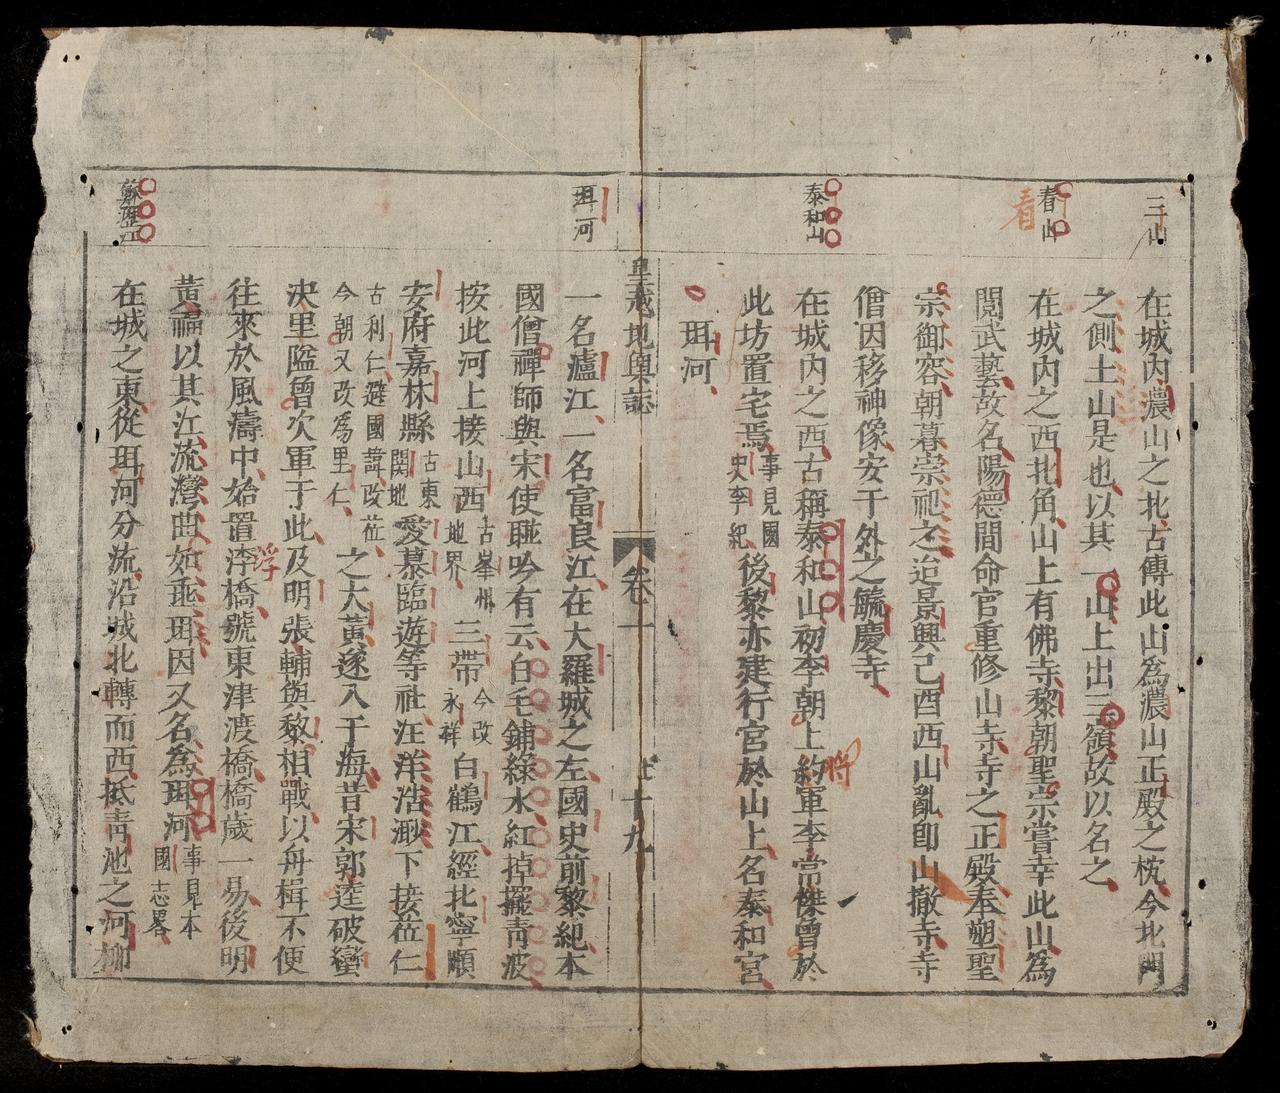 三山
在城内濃山之北古傳此山為濃山正殿之枕今北門
之側土山是也以其一山上出三嶺故以名之
春山
看
在城内之西北角山上有佛寺黎朝聖宗嘗幸此山為
閲武藝故名陽德間命官重修山寺寺之正殿奉塑聖
宗御容朝暮崇祀之迨景興己酉西山亂卽山撤寺寺
僧因移神像安于外之毓慶寺
泰和山
在城内之西古稱泰和山初李朝上約軍李常傑曾於
將
此坊置宅焉事見國史李紀後黎亦建行宮於山上名泰和宮
珥河
皇越地輿誌
卷一
十九
珥河
一名瀘江一名富良江在大羅城之左國史前黎紀本
國僧禪師與宋使聯吟有云白毛鋪綠水紅掉擺靑波
按此河上接山西古峯州地界三帶今改永祥白鶴江經北寧順
安府嘉林縣古東関地愛慕臨遊等社汪洋浩渺下接莅仁
古利仁避國諱改莅仁今朝又改為里仁之大黃遂入于海昔宋郭逵破蠻
决里隘曾次軍于此及明張輔與黎相戰以舟楫不便
往來於風濤中始置浮橋號東津渡橋橋歲一易後明
浮
黃福以其江流灣曲如垂珥因又名為珥河事見本國志畧
蘇瀝江
在城之東從珥河分流沿城北轉而西抵靑池之河柳